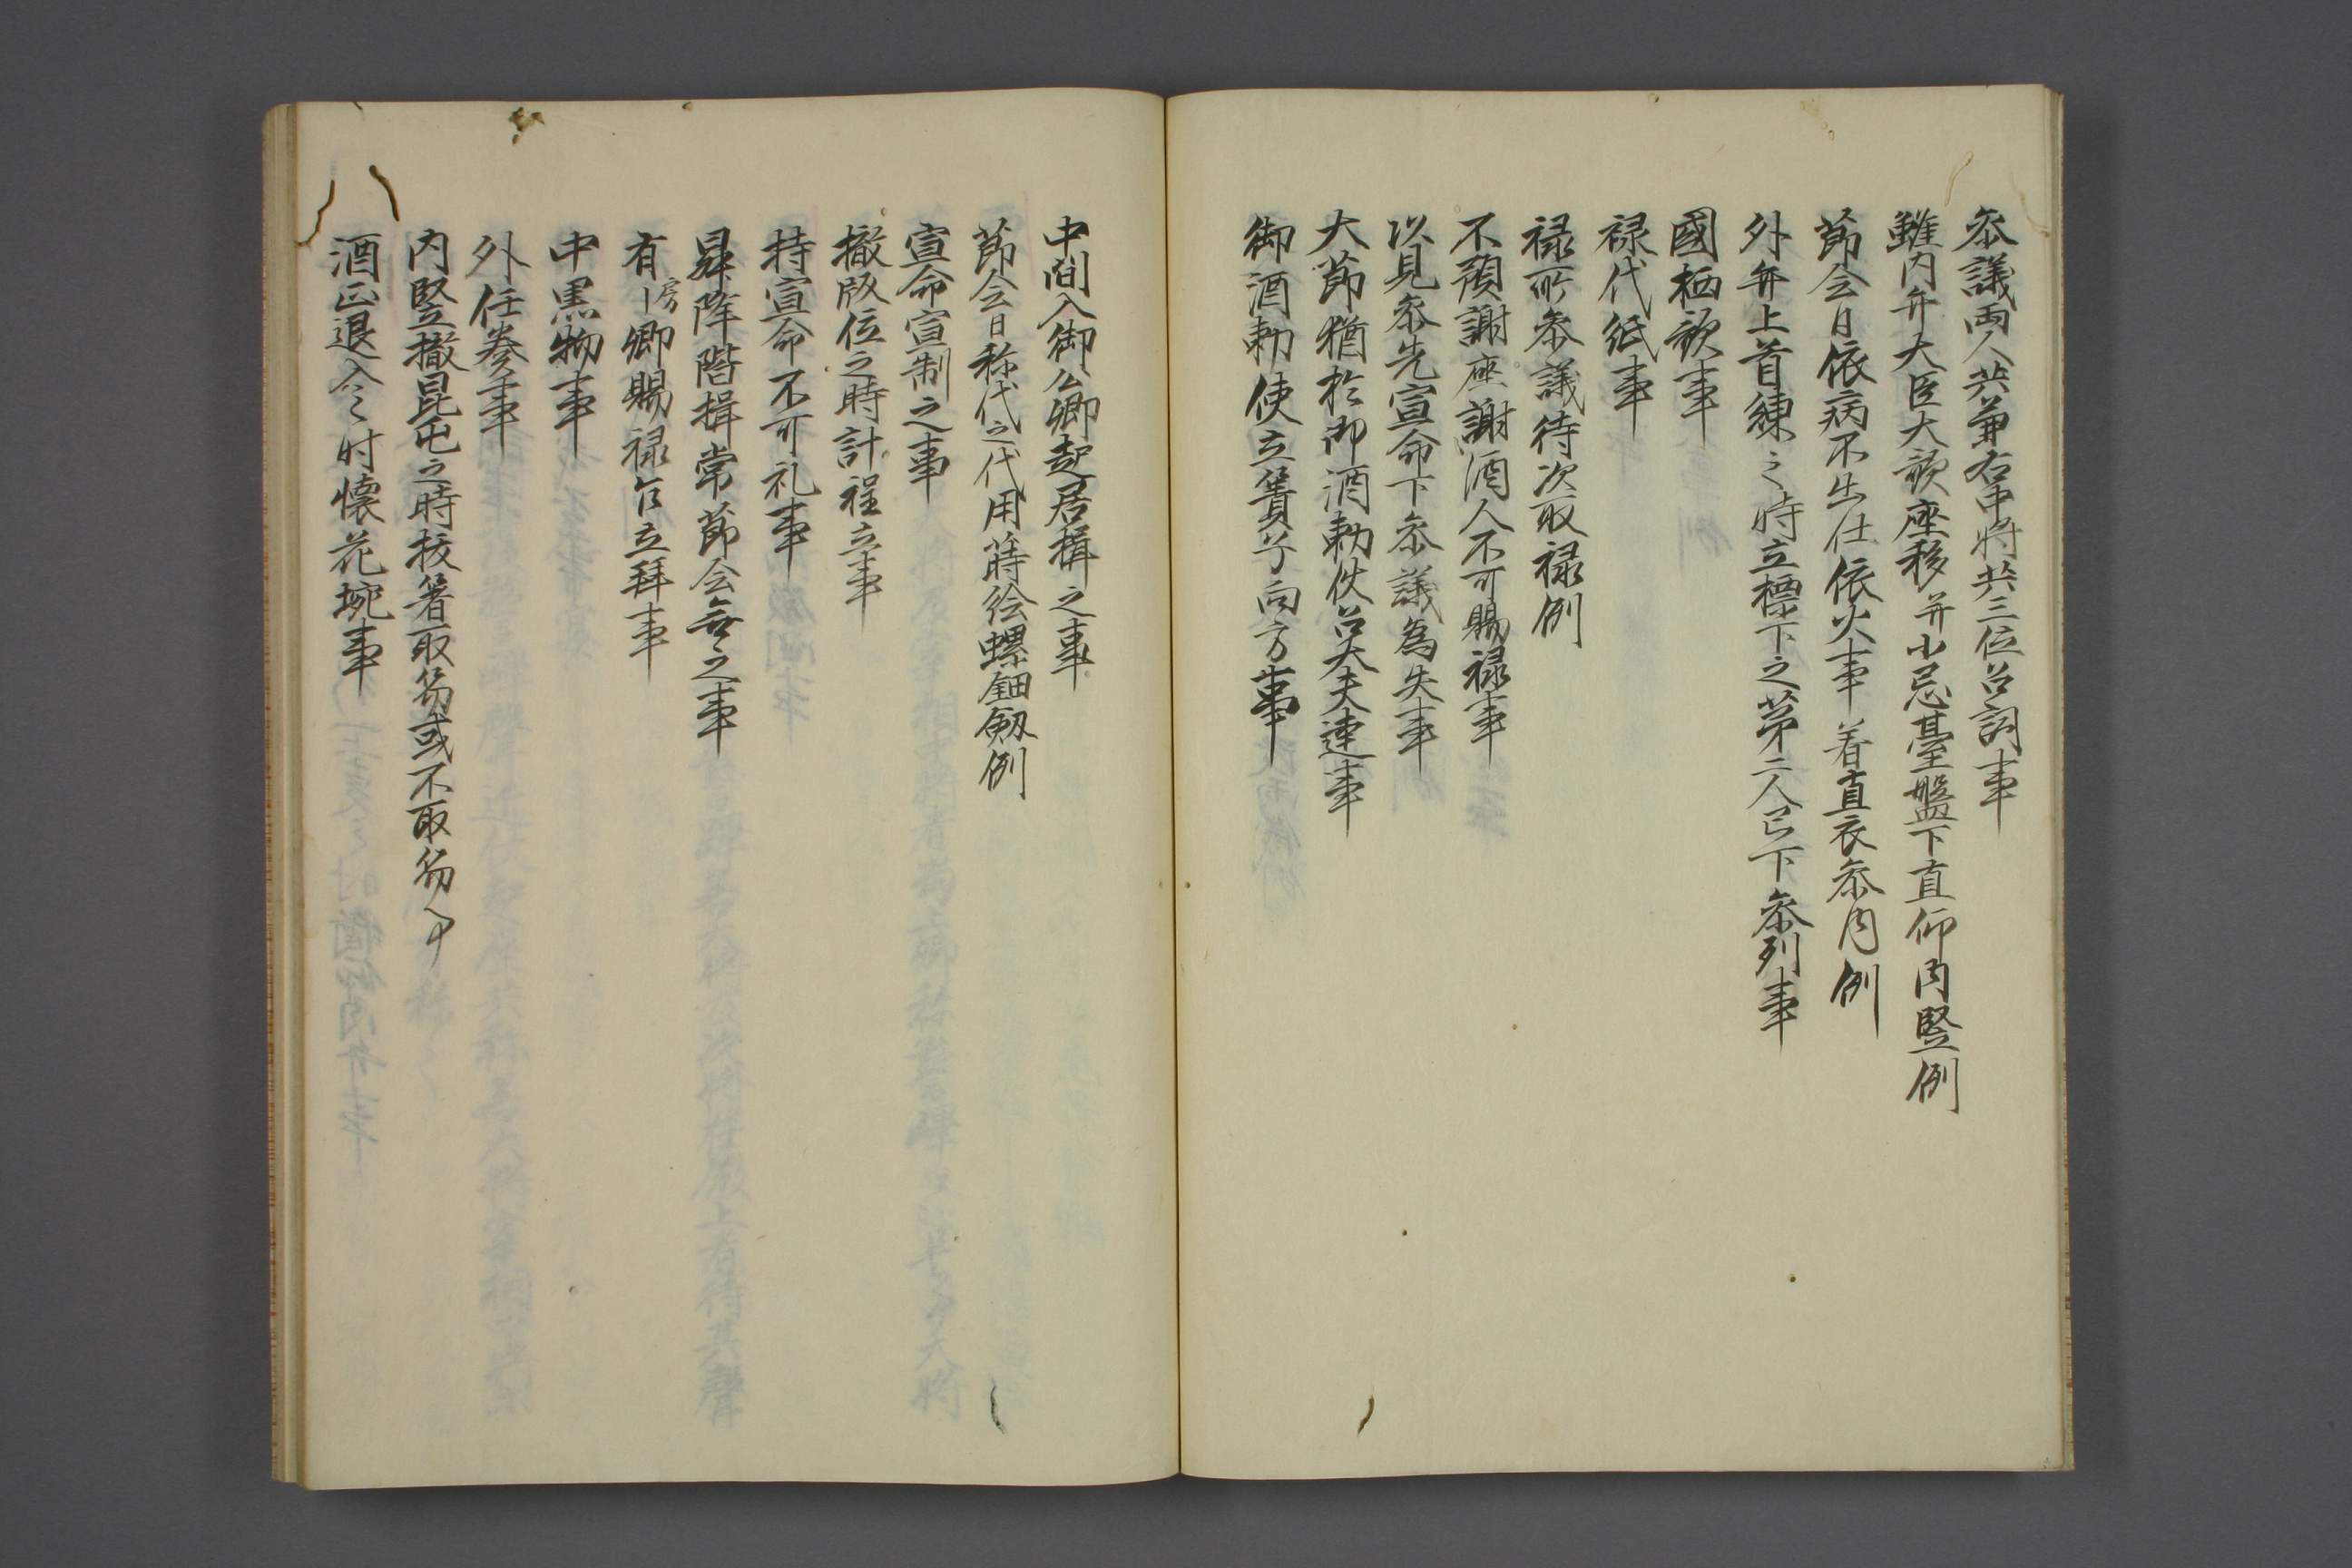 参議両人共兼右中将共三位召詞事
雖内弁大臣大歌座移并小忌臺盤下直仰内竪例
節会日依病不出仕依火事着直衣参内例
外弁上首練之時立標下之第二人已下参列事
國栖歌事
禄代紙事
禄所参議待次取禄例
不預謝座謝酒人不可賜禄事
以見参先宣命下参議為失事
大節猶於御酒勅使召大夫達事
御酒勅使立簀子向方事
中間入御公卿起居揖之事
節会日称代之代用蒔絵螺鈿劔例
宣命宣制之事
撤版位之時計程立事
持宣命不可礼事
昇降階揖常節会無之事
有房卿賜禄乍立拜事
中黒物事
外任奏事
内竪撤昆屯之時抜箸取笏或不取笏事
酒正退入之時懐花埦事